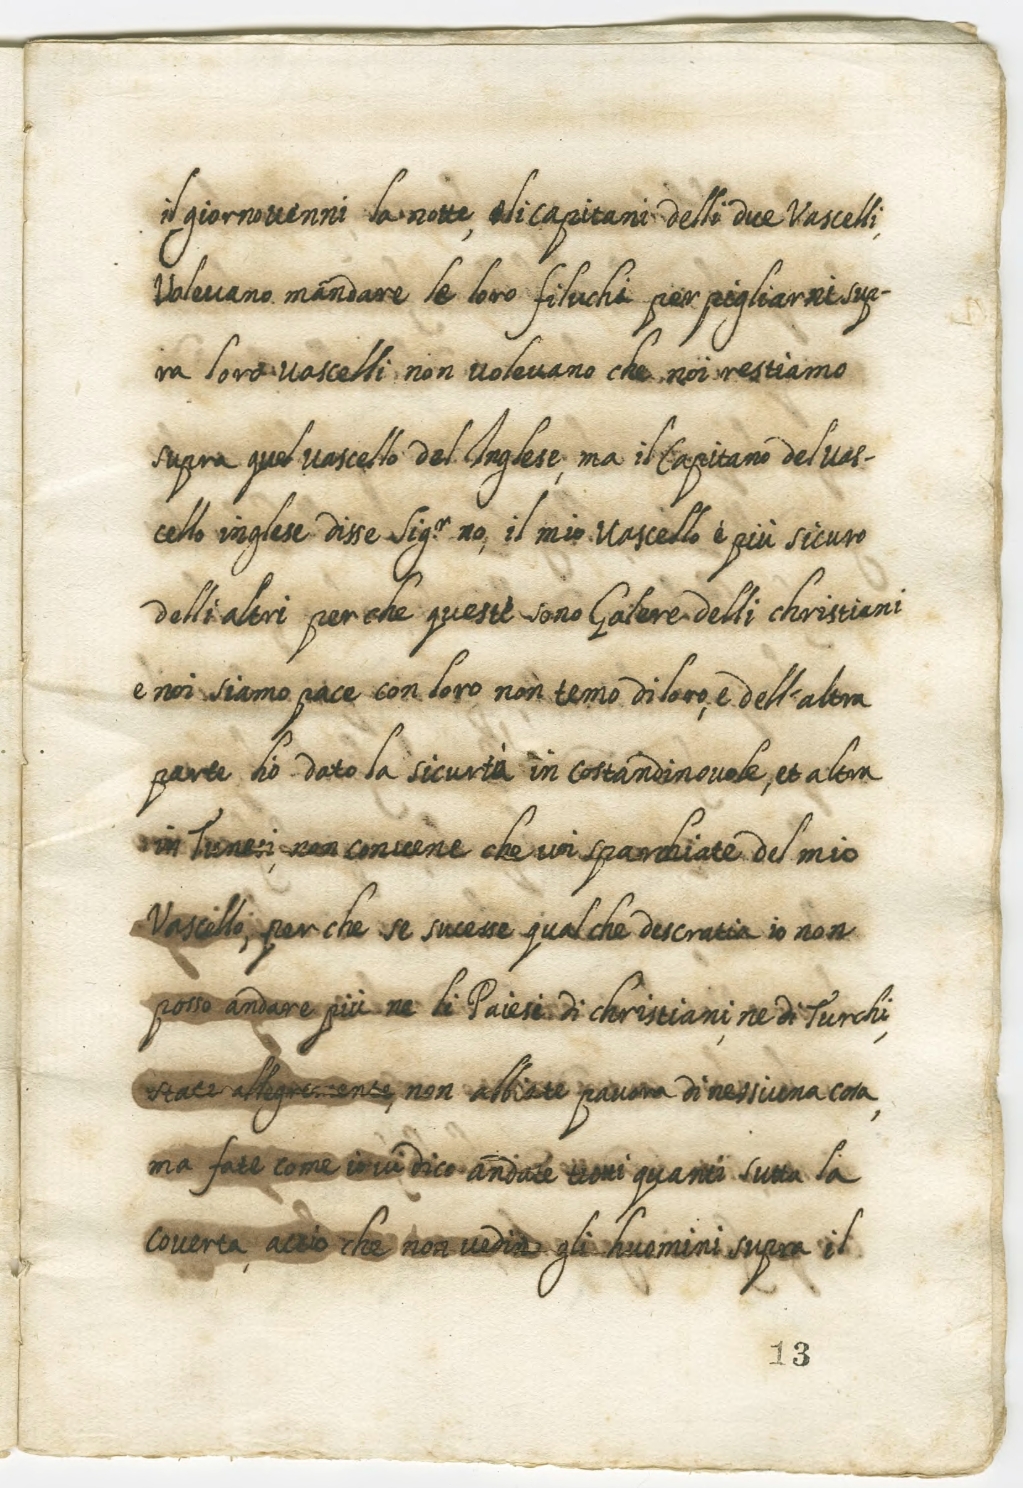 il giorno uenni la notte, eli Capitani delli due Vascelli,
Voleuano mandare le loro filuchi per pigliarni sup-
ra loro uascelli non uoleuano che noi restiamo
supra quel uascello del Inglese, ma il Capitano del Vas-
cello inglese disse Sig.r no, il mio Vascello è più sicuro
delli altri per che questi sono Galere delli christiani
e noi siamo pace con loro non temo di loro, e dell'altra
parte hò dato la sicurtà in Costandinouole, et altra
in Tunesi, non conuene che uoi sparchiate del mio
Vascello, per che se sucesse qual che descratia io non
posso andare più ne li Paiesi di christiani, ne di Turchi,
state allegramente, non abbiate pavora di nessiuena cosa,
ma fate come io ui dico andate tutti quanti sutta la
Couerta, accio che non uedin gli huemini supra il
13